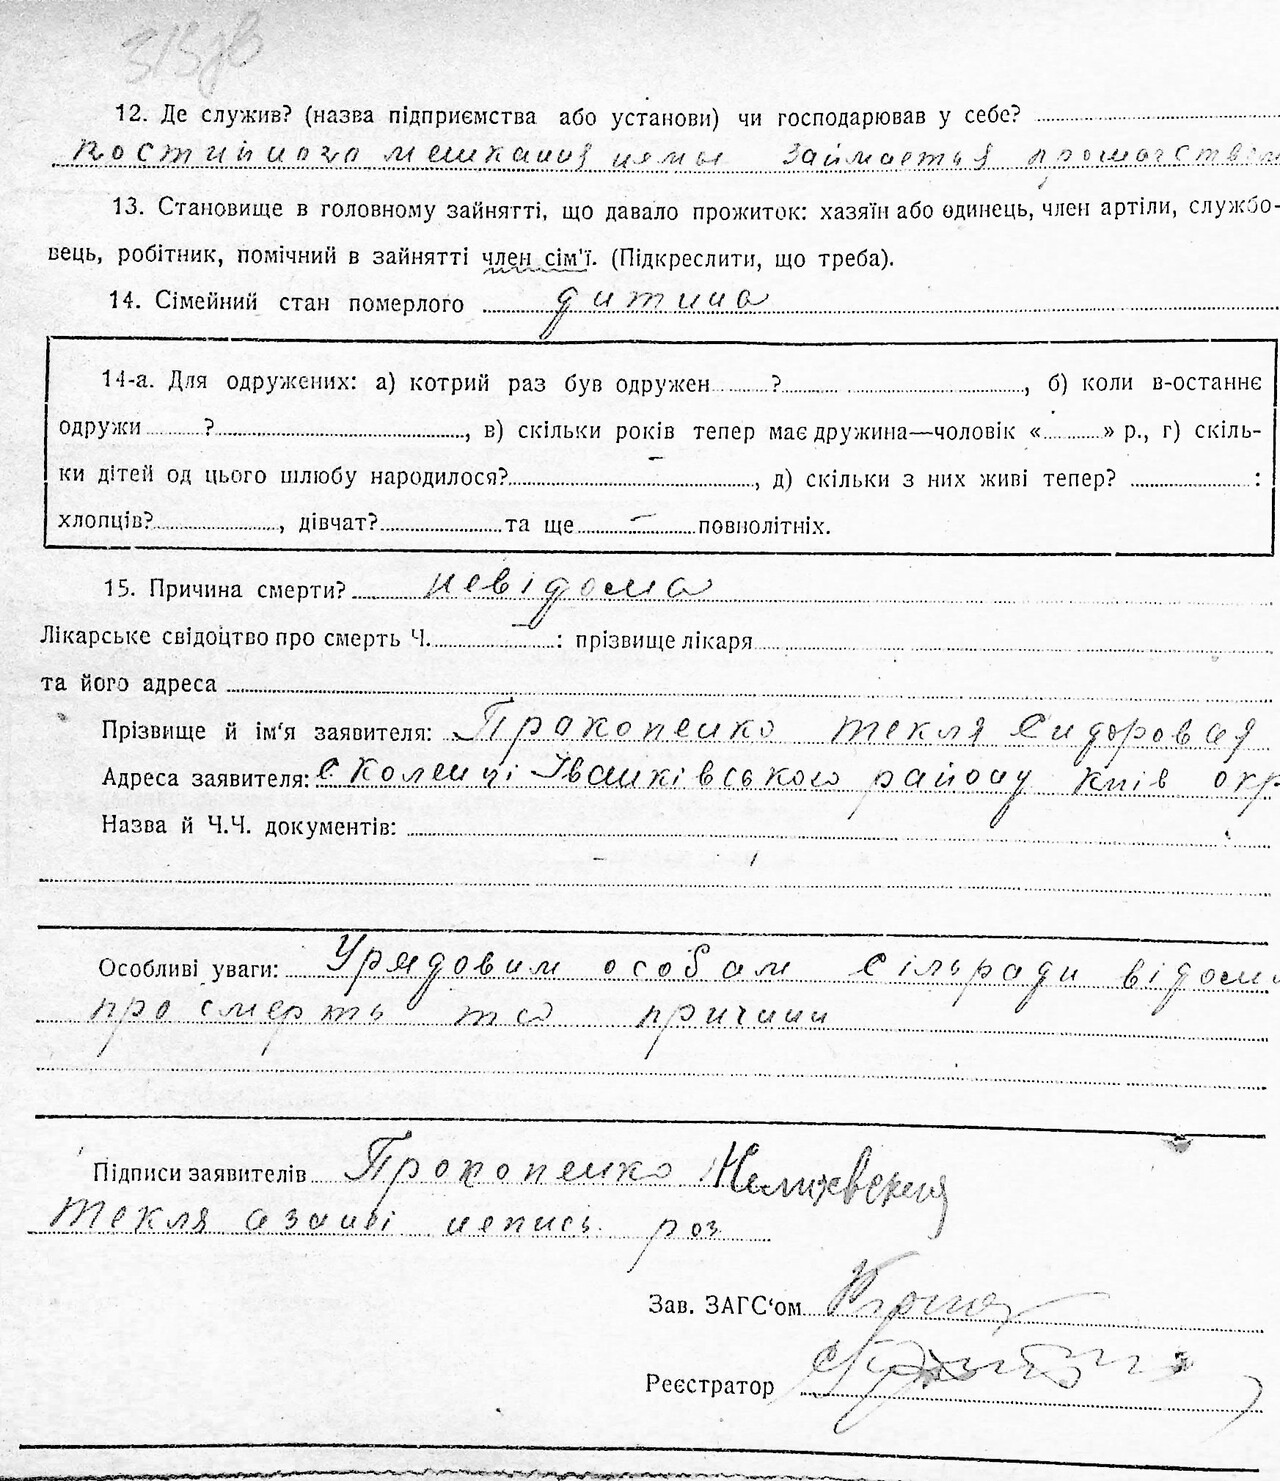 313дв
12. Де служив? (назва підприємства або установи) чи господарював у себе?
постийного мешкання нема займается прошачством
13. Становище в головному зайнятті, що давало прожиток: хазяїн або одинець, член артілі, службо-
вець, робітник, помічний в зайнятті член сім'ї. (Підкреслити, що треба).
14. Сімейний стан померлого дитина
14-а. Для одружених: а) котрий раз був одружен ? , б) коли в-останнє
одружи ? , в) скільки років тепер має дружина—чоловік « » р., г) скіль-
ки дітей од цього шлюбу народилося? , д) скільки з них живі тепер? :
хлопців? , дівчат? та ще — повнолітніх.
15. Причина смерти? невідома
Лікарське свідоцтво про смерть Ч. — : прізвище лікаря
та його адреса
Прізвище й ім'я заявителя: Прокопенко Текля Сидоровая
Адреса заявителя: с Коленці Іванківського району Київ окр
Назва й Ч.Ч. документів:
Особливі уваги: Урядовим особам сільради відома
про смерть та причини
Підписи заявителів Прокопенко
Текля а за неї непись. роз
Зав. ЗАГС'ом
Реєстратор